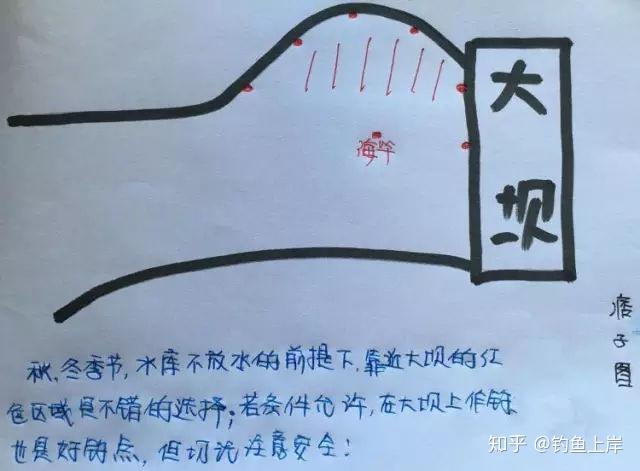 大坝
海竿
痞子图
秋、冬季节，水库不放水的前提下，靠近大坝的红
色区域是不错的选择；若条件允许，在大坝上作钓
也是好钓点，但切记注意安全！
知乎 @钓鱼上岸